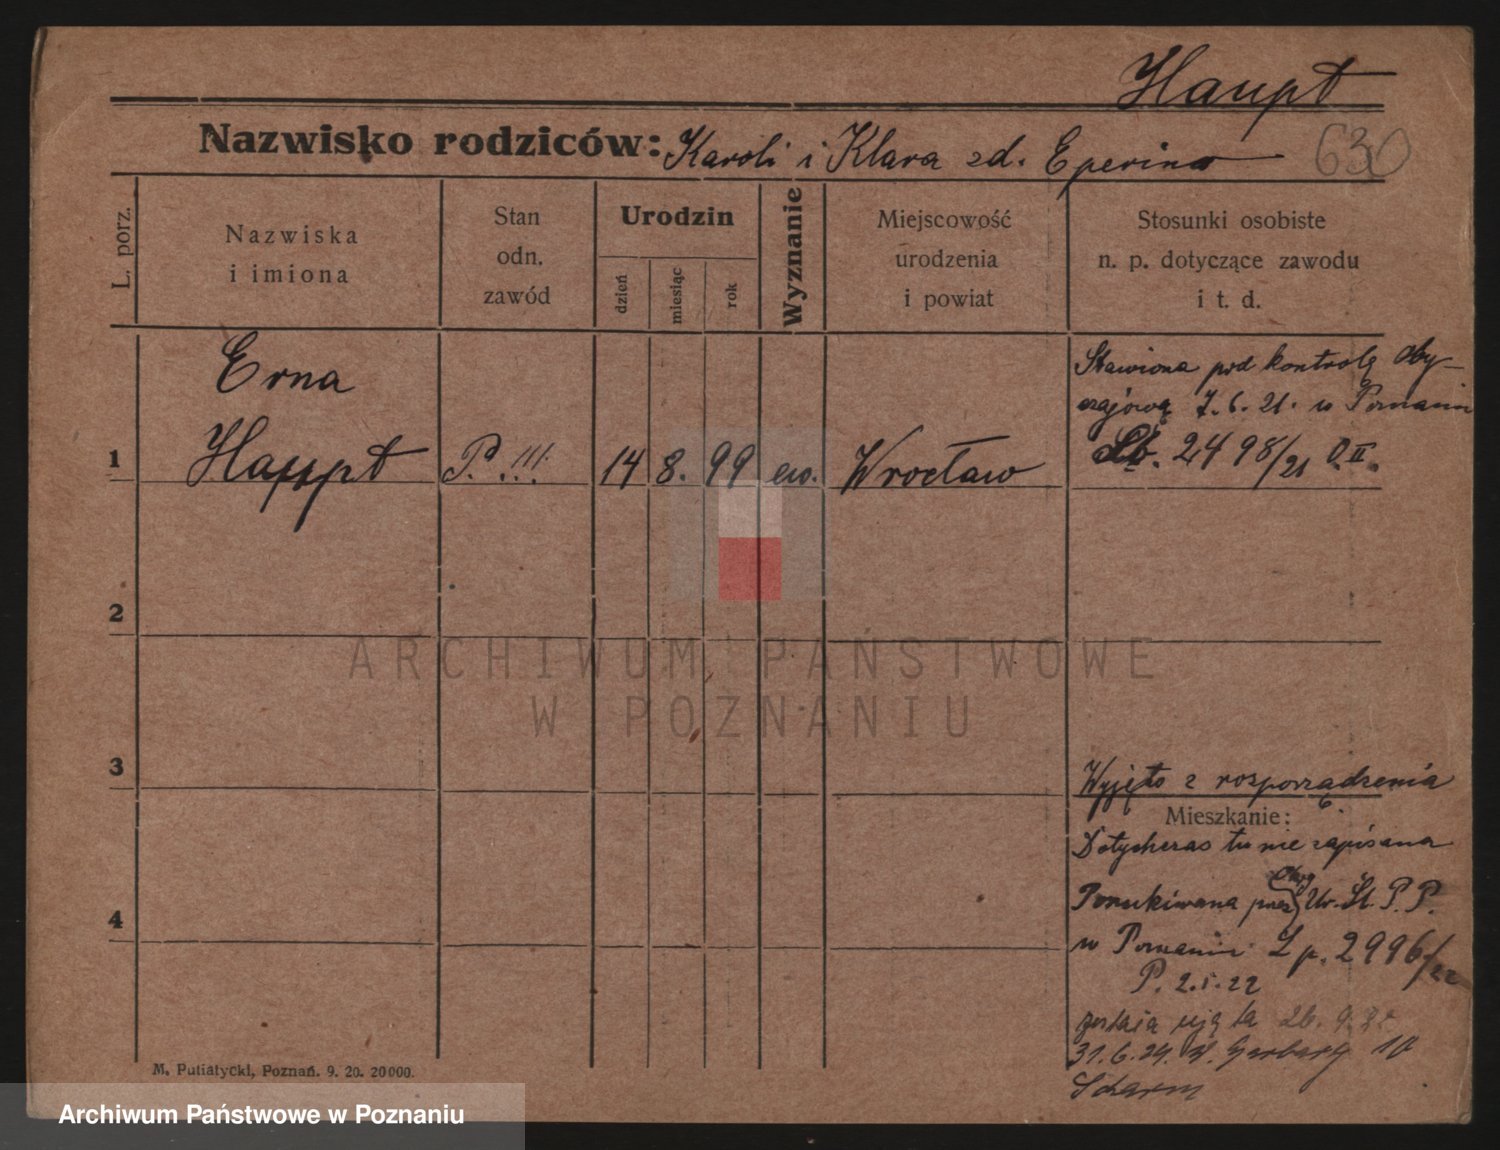 Haupt
Nazwisko rodziców: Karoli i Klara zd. Eperina
630
L. porz.
Nazwiska
i imiona
Stan
odn.
zawód
Urodzin
dzień
miesiąc
rok
Wyznanie
Miejscowość
urodzenia
i powiat
Stosunki osobiste
n. p. dotyczące zawodu
i t. d.
Erna
1 Haupt P. 14 8. 99 ew. Wrocław
Stawiona pod kontrolę oby-
czajową 7.6.21. w Poznaniu
Lb. 2498/21 O.II.
2
3
4
Wyjęto z rozporządzenia
Mieszkanie:
Dotychczas tu nie zapisana
Poszukiwana przez Okrę Ur. Śl. P. P.
w Poznaniu L p. 2996/22
P. 2.1.22
została ujęta 26. 9.
31.6.24. W. Garbary 10
M. Putiatycki, Poznań. 9. 20. 20000.
ARCHIWUM PAŃSTWOWE
W POZNANIU
Archiwum Państwowe w Poznaniu